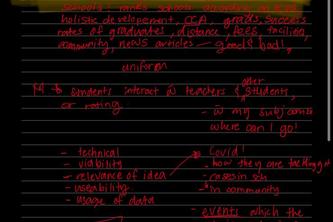 schools: ranks schools according to
holistic development, CCA, grads, success
rates of graduates, distance, fees, facilities,
community, news articles — good & bad,
uniform
M → students interact w teachers & other students,
or rating.
- w my subj combi
where can I go?
- technical
- viability
- relevance of idea
- useability
- usage of data
Covid!
- how they are tackling it
- cases in sch
- in community
- events which the